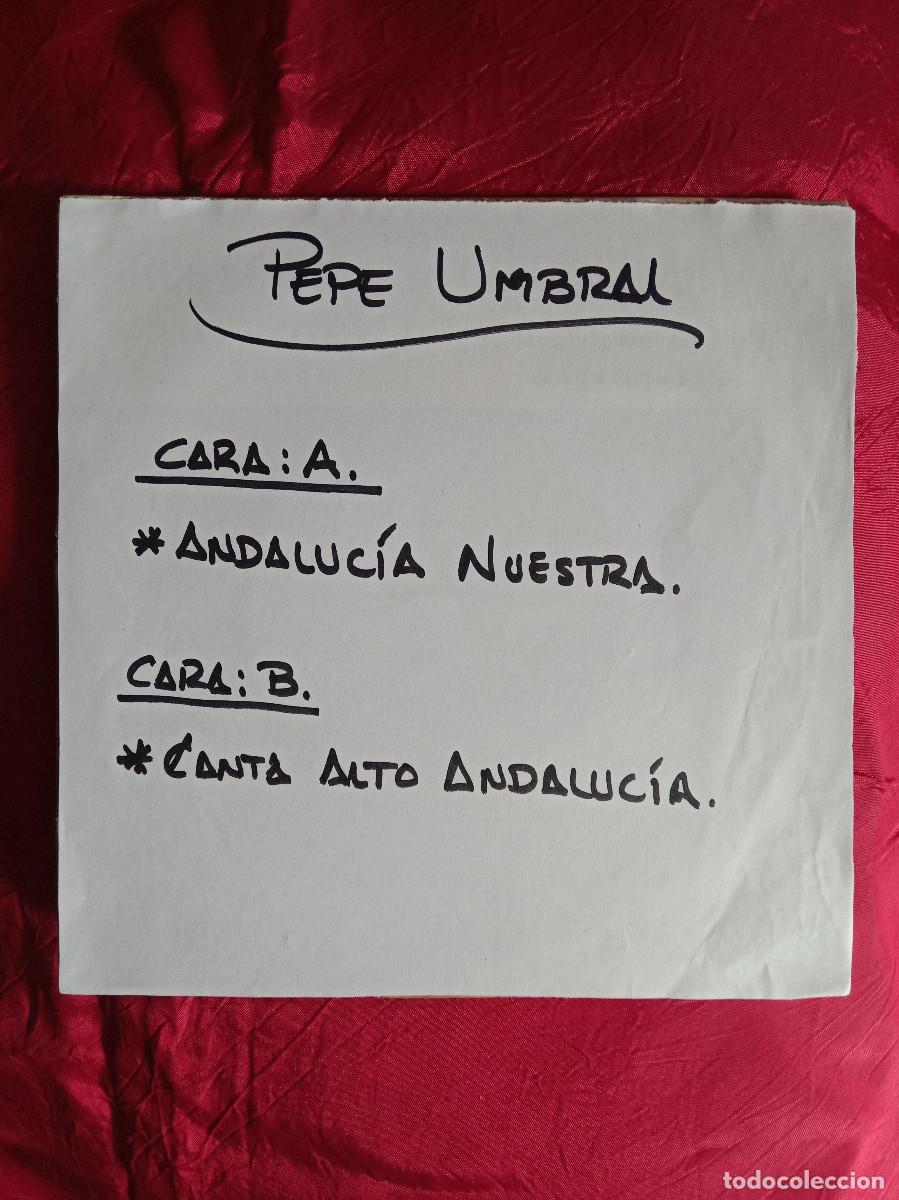 PEPE UMBRAL
CARA: A.
* ANDALUCÍA NUESTRA.
CARA: B.
* CANTA ALTO ANDALUCÍA.
todocoleccion